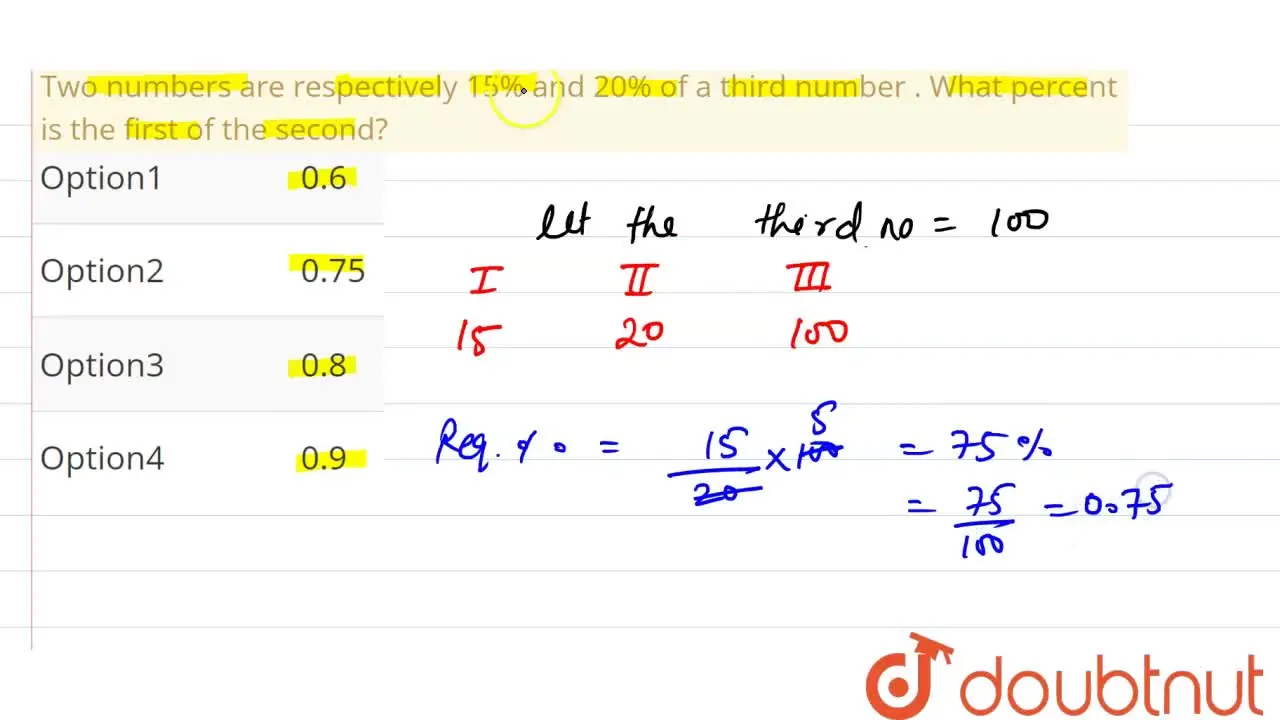 Two numbers are respectively 15% and 20% of a third number . What percent
is the first of the second?
Option1 0.6
Option2 0.75
Option3 0.8
Option4 0.9
let the third no = 100
I II III
15 20 100
Req. % = 15/20 × 100 5 = 75 %
= 75/100 = 0.75
doubtnut